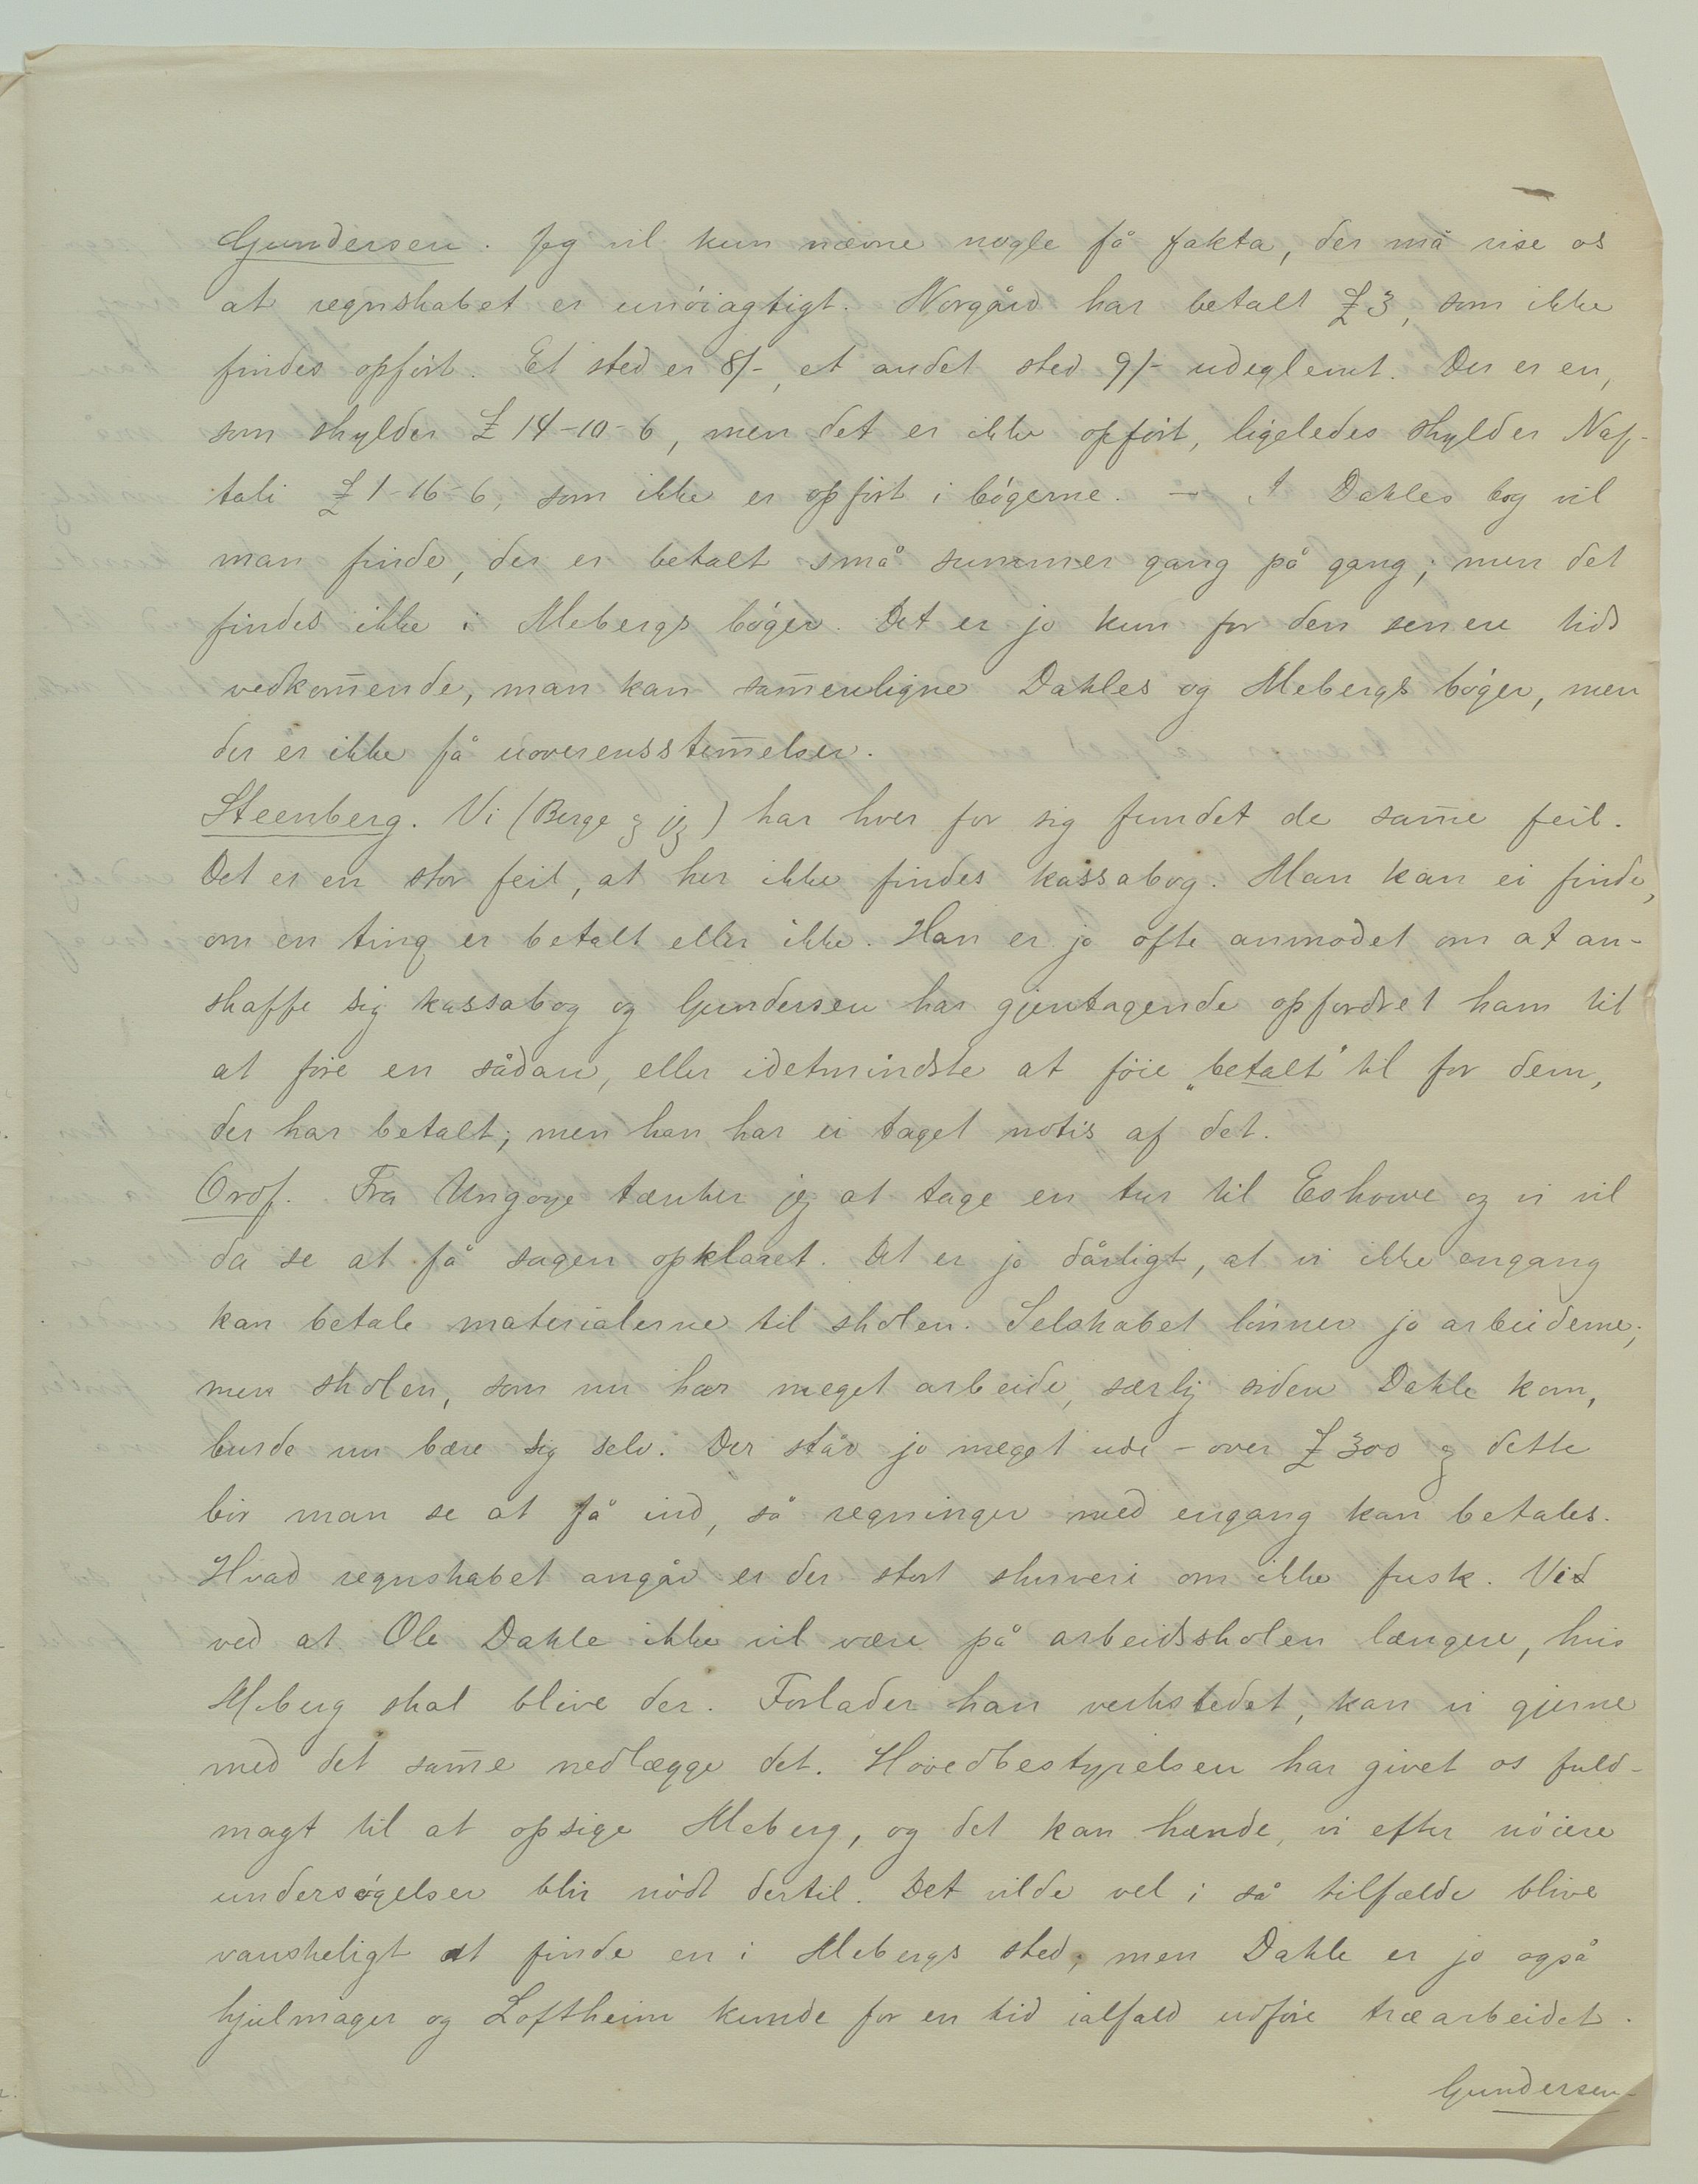 Gundersen. Jeg vil kun nævne nogle få fakta, der må vise os
at regnskabet er unöiagtigt. Norgård har betalt £3, som ikke
findes opfört. Et sted er 8/-, et andet sted 9/- udeglemt. Der er en,
som skylder £ 14-10-6, men det er ikke opfört, ligeledes skylder Naf-
tali £ 1-16-6, som ikke er opfört i bögerne. — I Dahles bog vil
man finde, der er betalt små summer gang på gang; men det
findes ikke i Mebergs böger. Det er jo kun for den senere tids
vedkom̅ende, man kan sam̅enligne Dahles og Mebergs böger, men
der er ikke få uoverensstem̅elser.
Steenberg. Vi (Berge og jeg) har hver for sig fundet de sam̅e feil.
Det er en stor feil, at her ikke findes kassabog. Man kan ei finde,
om en ting er betalt eller ikke. Han er jo ofte anmodet om at an-
skaffe sig kassabog og Gundersen har gjentagende opfordret ham til
at före en sådan, eller idetmindste at föie „betalt" til for dem,
der har betalt; men han har ei taget notis af det.
Ordf. Fra Ungoye tænker jeg at tage en tur til Eshowe og vi vil
da se at få sagen opklaret. Det er jo dårligt, at vi ikke engang
kan betale materialerne til skolen. Selskabet lönner jo arbeiderne;
men skolen, som nu har meget arbeide, særlig siden Dahle kom,
burde nu bære sig selv. Der står jo meget ude - over £ 300 og dette
bör man se at få ind, så regninger med engang kan betales.
Hvad regnskabet angår er der stort skurveri om ikke fusk. Vid
ved at Ole Dahle ikke vil være på arbeidsskolen længere, hvis
Meberg skal blive der. Forlader han verkstedet, kan vi gjerne
med det sam̅e nedlægge det. Hovedbestyrelsen har givet os fuld-
magt til at opsige Meberg, og det kan hænde, vi efter nöiere
undersögelser blir nödt dertil. Det vilde vel i så tilfælde blive
vanskeligt at finde en i Mebergs sted, men Dahle er jo også
hjulmager og Loftheim kunde for en tid ialfald udföre træarbeidet.
Gundersen-